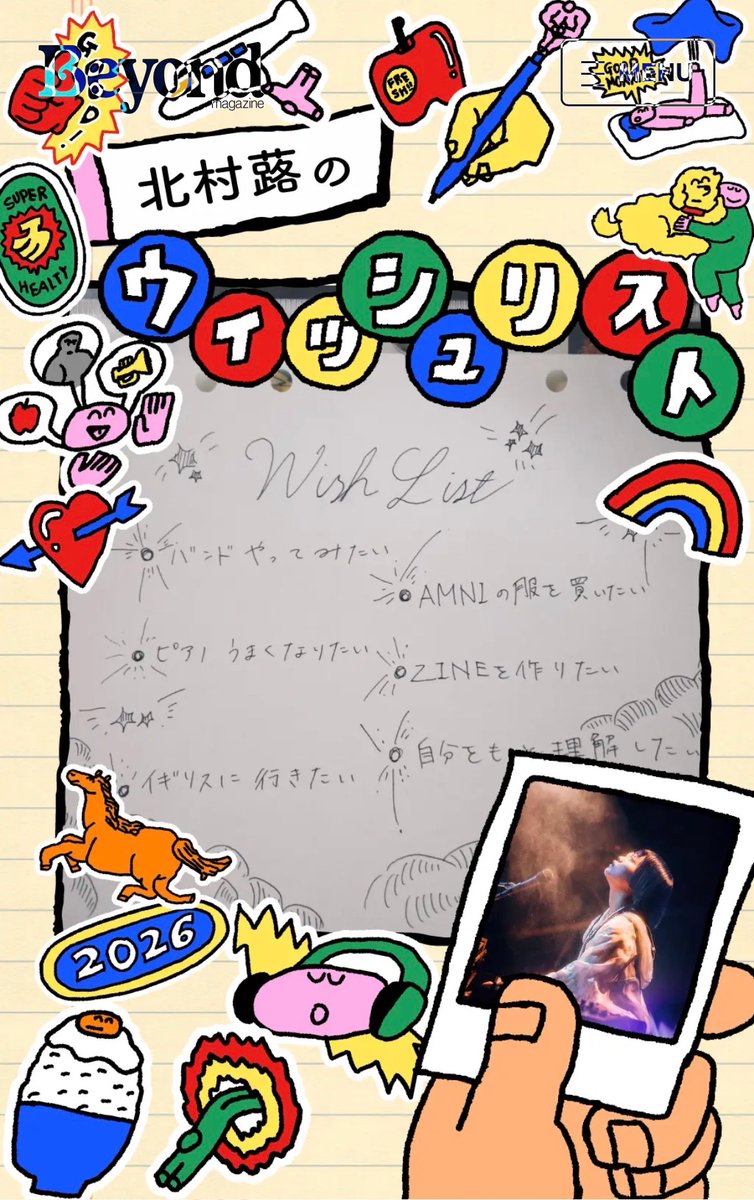 GOOD!
Beyond
magazine
FRE
SH!!
GO
MO
MENU
北村蕗の
SUPER
HEALTY
ウィッシュリスト
Wish List
バンドやってみたい
AMNIの服を買いたい
ピアノうまくなりたい
ZINEを作りたい
自分をもっと理解したい
イギリスに行きたい
2026